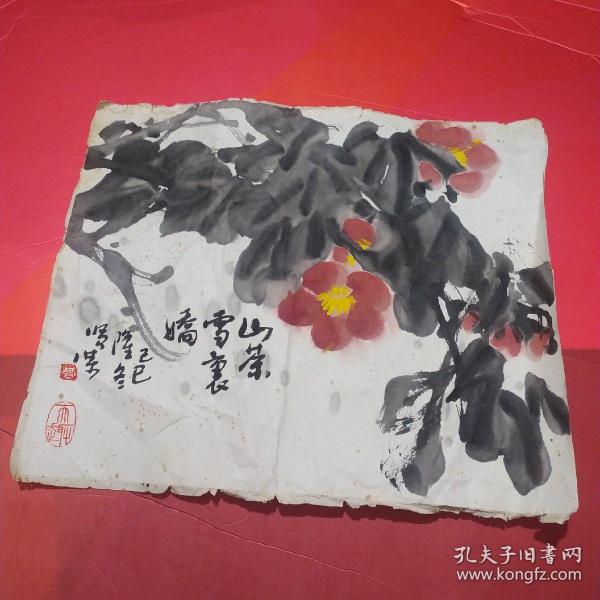 山茶
雪裏
嬌
己巳
隆冬
孔夫子旧书网
www.kongfz.com